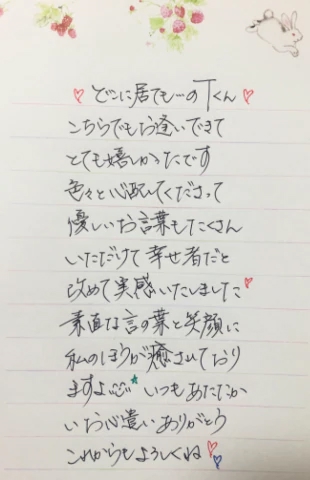 ♡どこに居ても…のTくん♡
こちらでもお逢いできて
とても嬉しかったです
色々と心配してくださって
優しいお言葉もたくさん
いただけて幸せ者だと
改めて実感いたしました♡
素直な言の葉と笑顔に
私のほうが癒されており
ますよ☺★いつもあたたか
いお心遣いありがとう
これからもよろしくね♡♡